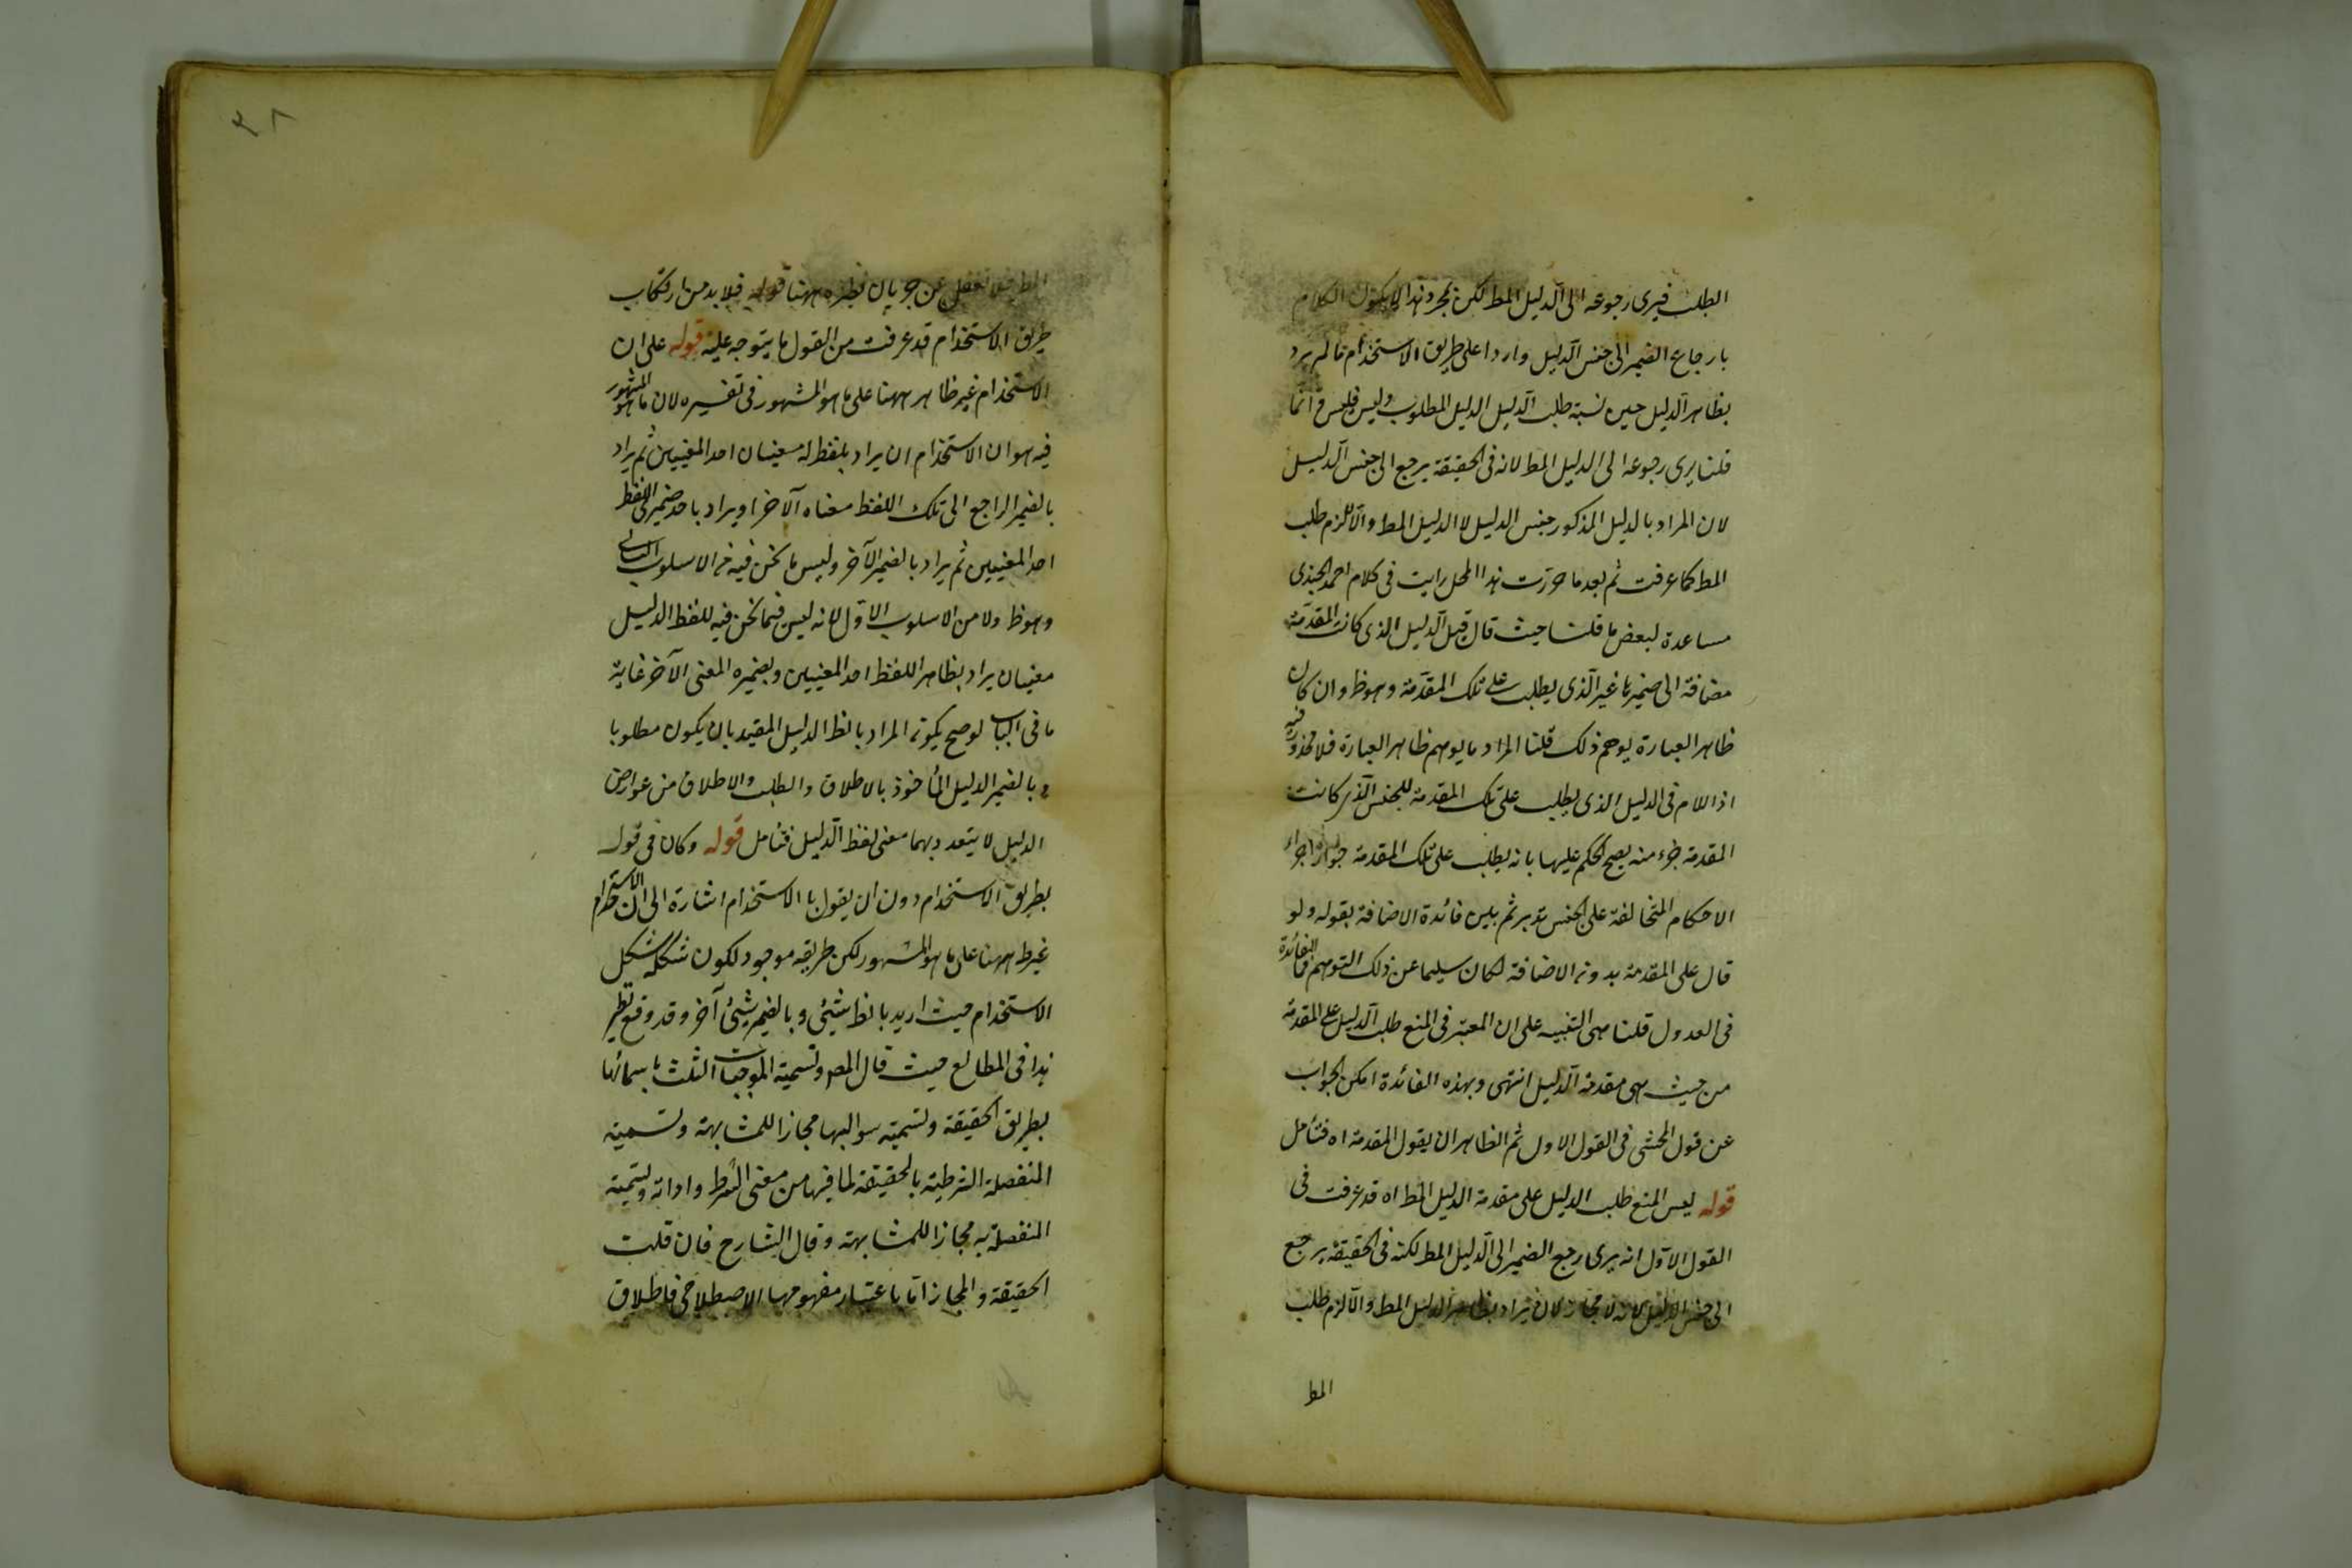 الطلب فيرى رجوعه الى الدليل المط لكن بمجرد هذا لا يكون الكلام
بارجاع الضمير الى جنس الدليل واردا على طريق الاستخدام ما لم يرد
بظاهر الدليل حين نسبة طلب الدليل الدليل المطلوب وليس فليس وانما
قلنا يرى رجوعه الى الدليل المط لانه فى الحقيقة يرجع الى جنس الدليل
لان المراد بالدليل المذكور جنس الدليل لا الدليل المط والا لزم طلب
المط كما عرفت ثم بعد ما حررت هذا المحل رايت فى كلام احمد الجندى
مساعدة لبعض ما قلنا حيث قال قيل الدليل الذى كانت المقدمة
مضافة الى ضميرها غير الذى يطلب على تلك المقدمة وهو ظ وان كان
ظاهر العبارة يوهم ذلك قلنا المراد ما يوهم ظاهر العبارة فلا محذور فيه
اذ اللام فى الدليل الذى يطلب على تلك المقدمة للجنس الذى كانت
المقدمة جزء منه يصح الحكم عليها بانه يطلب على تلك المقدمة جواز اجراء
الاحكام المتخالفة على الجنس تدبر ثم بين فائدة الاضافة بقوله ولو
قال على المقدمة بدون الاضافة لكان سليما عن ذلك التوهم فما الفائدة
فى العدول قلنا هى التنبيه على ان المعتبر فى المنع طلب الدليل على المقدمة
من حيث هى مقدمة الدليل انتهى وبهذه الفائدة امكن الجواب
عن قول المحشى فى القول الاول ثم الظاهر ان يقول المقدمة اه فتأمل
قوله ليس المنع طلب الدليل على مقدمة الدليل المط اه قد عرفت فى
القول الاول انه يرى رجع الضمير الى الدليل المط لكنه فى الحقيقة يرجع
الى جنس الدليل لانه لا مجاز لان يراد بظاهر الدليل المط والا لزم طلب
المط
٢٨
المط فلا تغفل عن جريان نظيره ههنا قوله فلا بد من ارتكاب
طريق الاستخدام قد عرفت من القول ما يتوجه عليه قوله على ان
الاستخدام غير ظاهر ههنا على ما هو المشهور فى تفسيره لان ما هو المشهور
فيه هو ان الاستخدام ان يراد بلفظ له معنيان احد المعنيين ثم يراد
بالضمير الراجع الى تلك اللفظ معناه الآخر او يراد باحد ضميرى اللفظ
احد المعنيين ثم يراد بالضمير الآخر وليس ما نحن فيه من الاسلوب الثانى
وهو ظ ولا من الاسلوب الاول لانه ليس فيما نحن فيه للفظ الدليل
معنيان يراد بظاهر اللفظ احد المعنيين وبضميره المعنى الآخر غاية
ما فى الباب لو صح يكون المراد بالظ الدليل المقيد بان يكون مطلوبا
و بالضمير الدليل المأخوذ بالاطلاق والطلب والاطلاق من عوارض
الدليل لا يتعدد بهما معنى لفظ الدليل فتأمل قوله وكان فى قوله
بطريق الاستخدام دون ان يقول بالاستخدام اشارة الى ان الاستخدام
غير ظ ههنا على ما هو المشهور لكن طريقه موجود لكون شكله شكل
الاستخدام حيث اريد بالظ شيئ وبالضمير شيئ آخر وقد وقع نظير
هذا فى المطالع حيث قال المص وتسمية الموجبات الثلث باسمائها
بطريق الحقيقة وتسمية سوالبها مجازا للمشابهة وتسمية
المنفصلة الشرطية بالحقيقة لما فيها من معنى الشرط واداته وتسمية
المنفصلة به مجازا للمشابهة وقال الشارح فان قلت
الحقيقة والمجاز اما باعتبار مفهومها الاصطلاحى فاطلاق